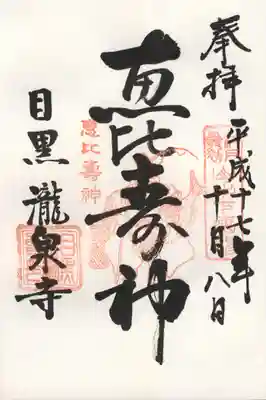 奉拝
平成十七年
十月八日
恵比寿神
恵比壽神
目黒 瀧泉寺